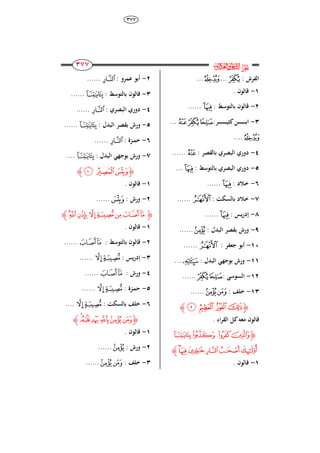 ٣٧٧
٣٧٧
الفرش : ... نُكَفِّرْ ... وَنُدْخِلْهُ ...
١- قالون .
٢- قالون بالتوسط : فِيهَآ ......
٣- ابن كثير : صَٰلِحًا يُكَفِّرْ عَنْهُ ...
وَيُدْخِلْهُ ....
٤- دوري البصري بالقصر : عَنْهُ ......
٥- دوري البصري بالتوسط : فِيهَآ ...
٦- خلاد : فِيهَآ ......
٧- خلاد بالسكت : ٱلْأَنْهَٰرُ ......
٨- إدريس : فِيهَآ ......
٩- ورش بقصر البدل : يُومِنۢ ......
١٠- أبو جعفر : ٱلْأَنْهَٰرُ ......
١١- ورش بوجهي البدل : سَيِّـَٔاتِهِۦ ...
١٢- السوسي : صَٰلِحًا يُكَفِّرْ ......
١٣- خلف : وَمَن يُؤْمِنۢ ......
﴿ ذَٰلِكَ ٱلْفَوْزُ ٱلْعَظِيمُ ٩ ﴾
قالون معه كل القراء .
﴿ وَٱلَّذِينَ كَفَرُوا۟ وَكَذَّبُوا۟ بِـَٔايَٰتِنَآ
أُو۟لَٰٓئِكَ أَصْحَٰبُ ٱلنَّارِ خَٰلِدِينَ فِيهَا ﴾
١- قالون .
٢- أبو عمرو : ٱلنَّارِ ......
٣- قالون بالتوسط : بِـَٔايَٰتِنَآ ......
٤- دوري البصري : ٱلنَّارِ ......
٥- ورش بقصر البدل : بِـَٔايَٰتِنَآ ......
٦- حمزة : ٱلنَّارِ ......
٧- ورش بوجهي البدل : بِـَٔايَٰتِنَآ ....
﴿ وَبِئْسَ ٱلْمَصِيرُ ١٠ ﴾
١- قالون .
٢- ورش : وَبِيسَ ......
﴿ مَآ أَصَابَ مِن مُّصِيبَةٍ إِلَّا بِإِذْنِ ٱللَّهِ ﴾
١- قالون .
٢- قالون بالتوسط : مَآ أَصَابَ ......
٣- إدريس : مُّصِيبَةٍ إِلَّا ......
٤- ورش : مَآ أَصَابَ ......
٥- حمزة : مُّصِيبَةٍ إِلَّا ......
٦- خلف بالسكت : مُّصِيبَةٍ إِلَّا ....
﴿ وَمَن يُؤْمِنۢ بِٱللَّهِ يَهْدِ قَلْبَهُۥ ﴾
١- قالون .
٢- ورش : يُومِنۢ ......
٣- خلف : وَمَن يُؤْمِنۢ ......